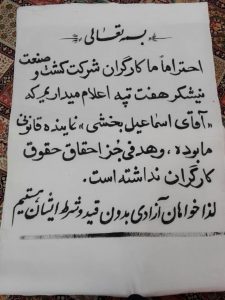 بسمه تعالی
احتراماً ما کارگران شرکت کشت و صنعت
نیشکر هفت تپه اعلام میداریم که
«آقای اسماعیل بخشی» نماینده قانونی
ما بوده، و هدفی جز احقاق حقوق
کارگران نداشته است.
لذا خواهان آزادی بدون قید و شرط ایشان هستیم